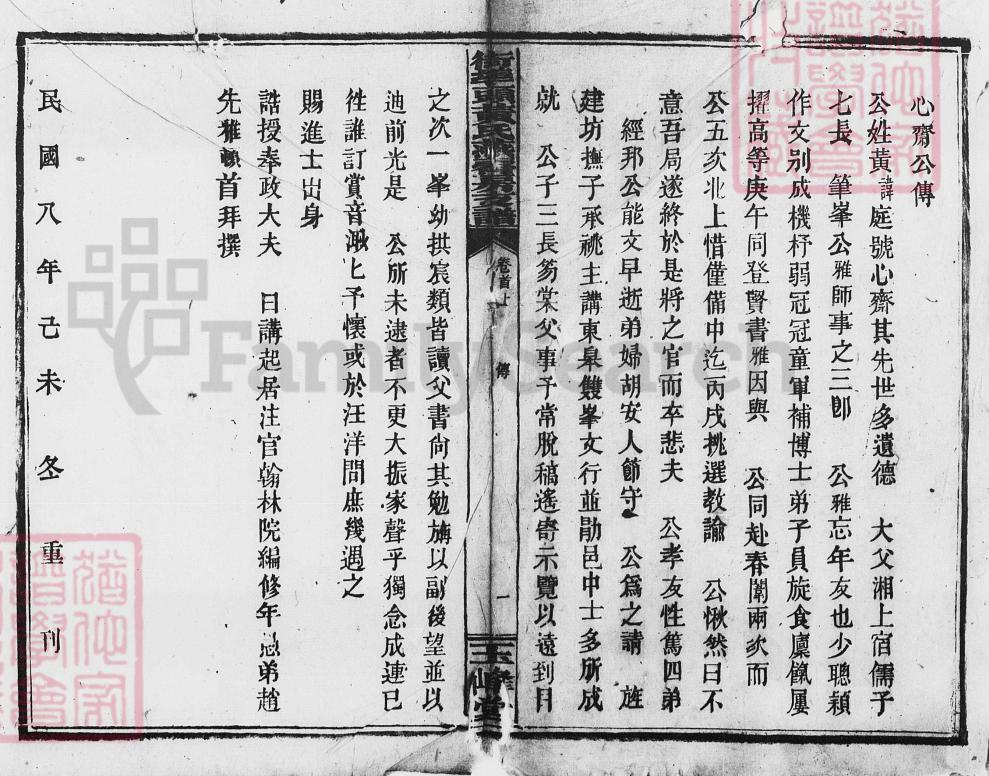 心齋公傳
公姓黃諱庭號心齋其先世多遺德 大父湘上宿儒子
七長 筆峯公雅師事之三卽 公雅忘年友也少聰穎
作文別成機杼弱冠冠童軍補博士弟子員旋食廩餼屢
擢高等庚午同登賢書雅因與 公同赴春闈兩次而
公五次北上惜僅備中迄丙戌挑選教諭 公愀然曰不
意吾局遂終於是將之官而卒悲夫 公孝友性篤四弟
經邦公能文早逝弟婦胡安人節守 公爲之請 旌
建坊撫子承祧主講東皐雙峯文行並勛邑中士多所成
就 公子三長笏棠父事予常脫稿遙寄示覽以遠到目
之次一峯幼拱宸類皆讀父書尙其勉旃以副後望並以
迪前光是 公所未逮者不更大振家聲乎獨念成連已
徃誰訂賞音湫上予懷或於汪洋間庶幾遇之
賜進士出身
誥授奉政大夫 日講起居注官翰林院編修年愚弟趙
先雅頓首拜撰
民國八年己未冬 重刊
卷首上 傳 一
玉峰堂
FamilySearch